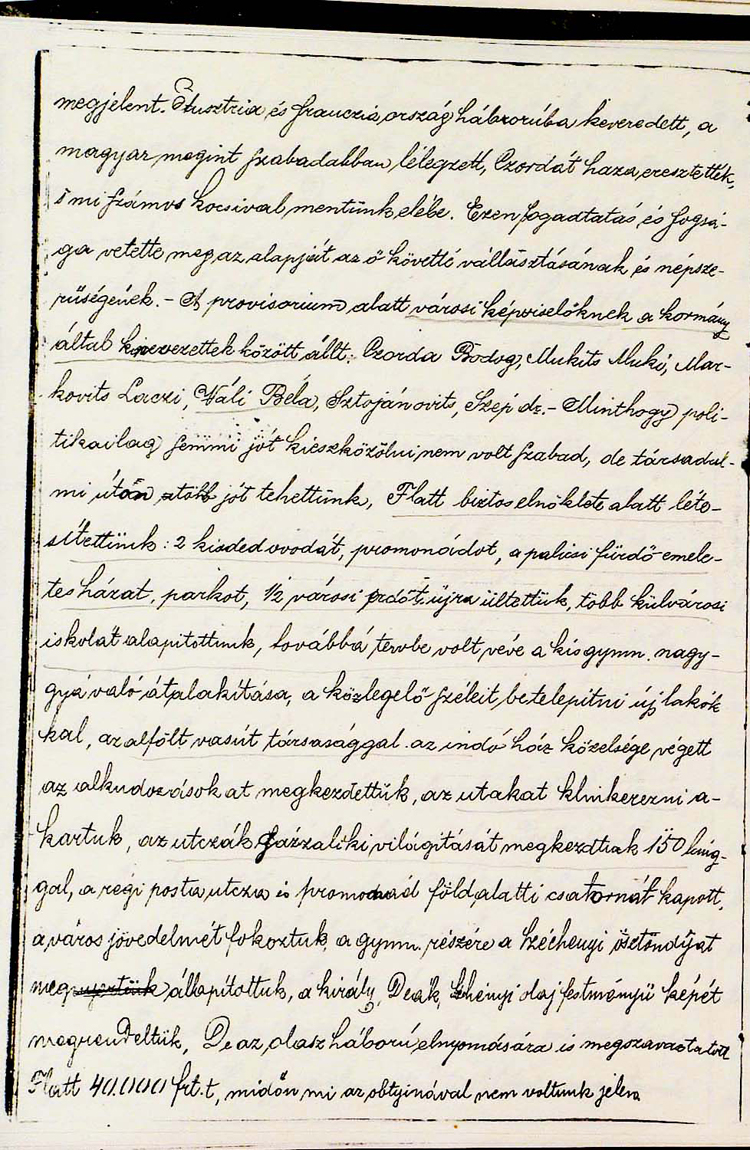 megjelent. Ausztria és francziaország háboruba keveredett, a
magyar megint szabadabban lélegzett, Czordát haza eresztették,
s mi számos kocsival mentünk elébe. Ezen fogadtatás és fogsá-
ga vetette meg az alapját az ő követté vállasztásának és népsze-
rüségének. - A provisorium alatt városi képviselőknek a kormány
által kinevezettek között állt: Czorda Bodog, Mukits Muki, Mar-
kovits Laczi, Váli Béla, Sztojánovits, Szép dr. - Minthogy poli-
tikailag semmi jót kieszközölni nem volt szabad, de társadal-
mi úton több jót tehettünk, Flatt biztos elnöklete alatt léte-
sítettünk: 2 kisdedovodát, promonádot, a palicsi fürdő emele-
tes házat, parkot, 1/2 városi erdőt ujra ültettük, több külvárosi
iskolát alapitottunk, továbbá tervbe volt véve a kis gymn. nagy-
gyá való átalakítása, a közlegelő széleit betelepitni új lakók
kal, az alfölt vasút társasággal az indó ház közelsége végett
az alkudozások at megkezdettük, az utakat klinkerezni a-
kartuk, az utczák gázzali kivilágitását megkezdtük 150 láng-
gal, a régi posta utcza és promonád föld alatti csatornát kapott,
a város jövedelmét fokoztuk, a gymn. részére a Széchenyi ösztöndijat
meg állapítottuk, a király, Deák, olajfestményü képét
megrendeltük, De az olasz háború elnyomására is megszavaztatott
Flatt 40.000 frt.t, midőn mi az voltunk jelen